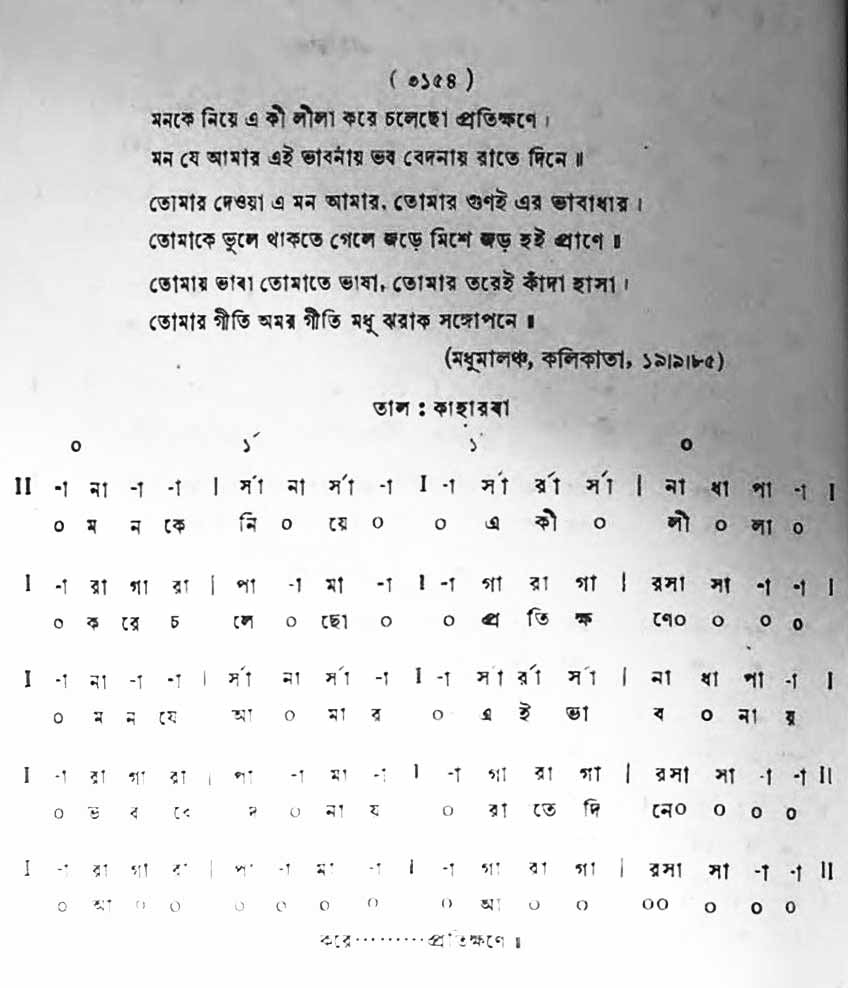 ( ৩১৫৪ )
মনকে নিয়ে এ কী লীলা করে চলেছো প্রতিক্ষণে ।
মন যে আমার এই ভাবনায় ভব বেদনায় রাতে দিনে ॥
তোমার দেওয়া এ মন আমার, তোমার গুণই এর ভাবাধার ।
তোমাকে ভুলে থাকতে গেলে জড়ে মিশে জড় হই প্রাণে ॥
তোমায় ভাবা তোমাতে ভাষা, তোমার তরেই কাঁদা হাসা ।
তোমার গীতি অমর গীতি মধু ঝরাক সঙ্গোপনে ॥
(মধুমালঞ্চ, কলিকাতা, ১৯।৯।৮৫)
তাল : কাহারবা
০ ১´ ১´ ০
II -া না -া -া | র্সা না র্সা -া I -া র্সা র্রা র্সা | না ধা পা -া I
০ ম ন কে নি ০ য়ে ০ ০ এ কী ০ লী ০ লা ০
I -া রা গা রা | পা -া মা -া I -া গা রা গা | রসা সা -া -া I
০ ক রে চ লে ০ ছো ০ ০ প্র তি ক্ষ ণে০ ০ ০ ০
I -া না -া -া | র্সা না র্সা -া I -া র্সা র্রা র্সা | না ধা পা -া I
০ ম ন যে আ ০ মা র ০ এ ই ভা ব ০ না য়
I -া রা গা রা | পা -া মা -া I -া গা রা গা | রসা সা -া -া II
০ ভ ব বে দ ০ না য ০ রা তে দি নে০ ০ ০ ০
I -া রা গা রা | পা -া মা -া I -া গা রা গা | রসা সা -া -া II
০ আ ০ ০ ০ ০ ০ ০ ০ আ ০ ০ ০০ ০ ০ ০
করে·········প্রতিক্ষণে ॥